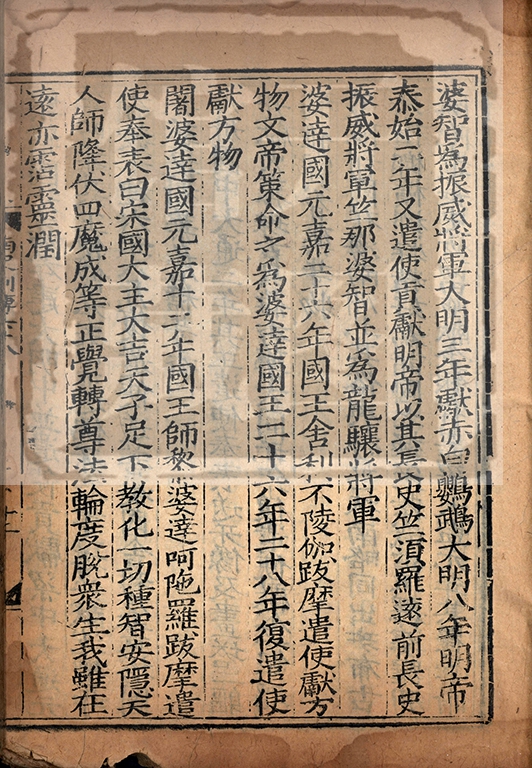 婆智爲振威將軍大明三年獻赤白鸚鵡大明八年明帝
泰始二年又遣使貢獻明帝以其長史竺須羅逺前長史
振威將軍竺那婆智並爲龍驤將軍
婆逹國元嘉二十六年國王舍利不陵伽跋摩遣使獻方
物文帝策命之爲婆逹國王二十六年二十八年復遣使
獻方物
闍婆逹國元嘉十二年國王師黎婆逹呵陁羅跋摩遣
使奉表曰宋國大主大吉天子足下教化一切種智安隠天
人師降伏四魔成等正覺轉尊法輪度脫衆生我雖在
逺亦霑靈潤